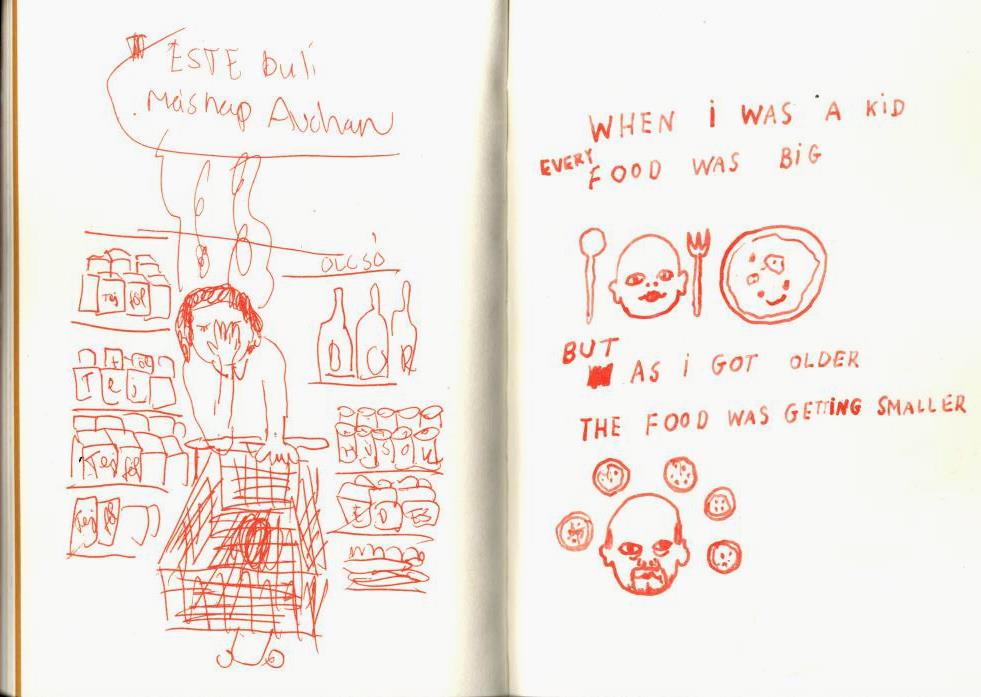 ESTE buli
Másnap Auchan
OLCSÓ
Tej föl
BOR
Tej
Tej föl
HÚSOK
Tej föl
ÉDES
WHEN i WAS A KiD
EVERY FOOD WAS BiG
BUT AS i GOT OLDER
THE FOOD WAS GETTiNG SMALLER